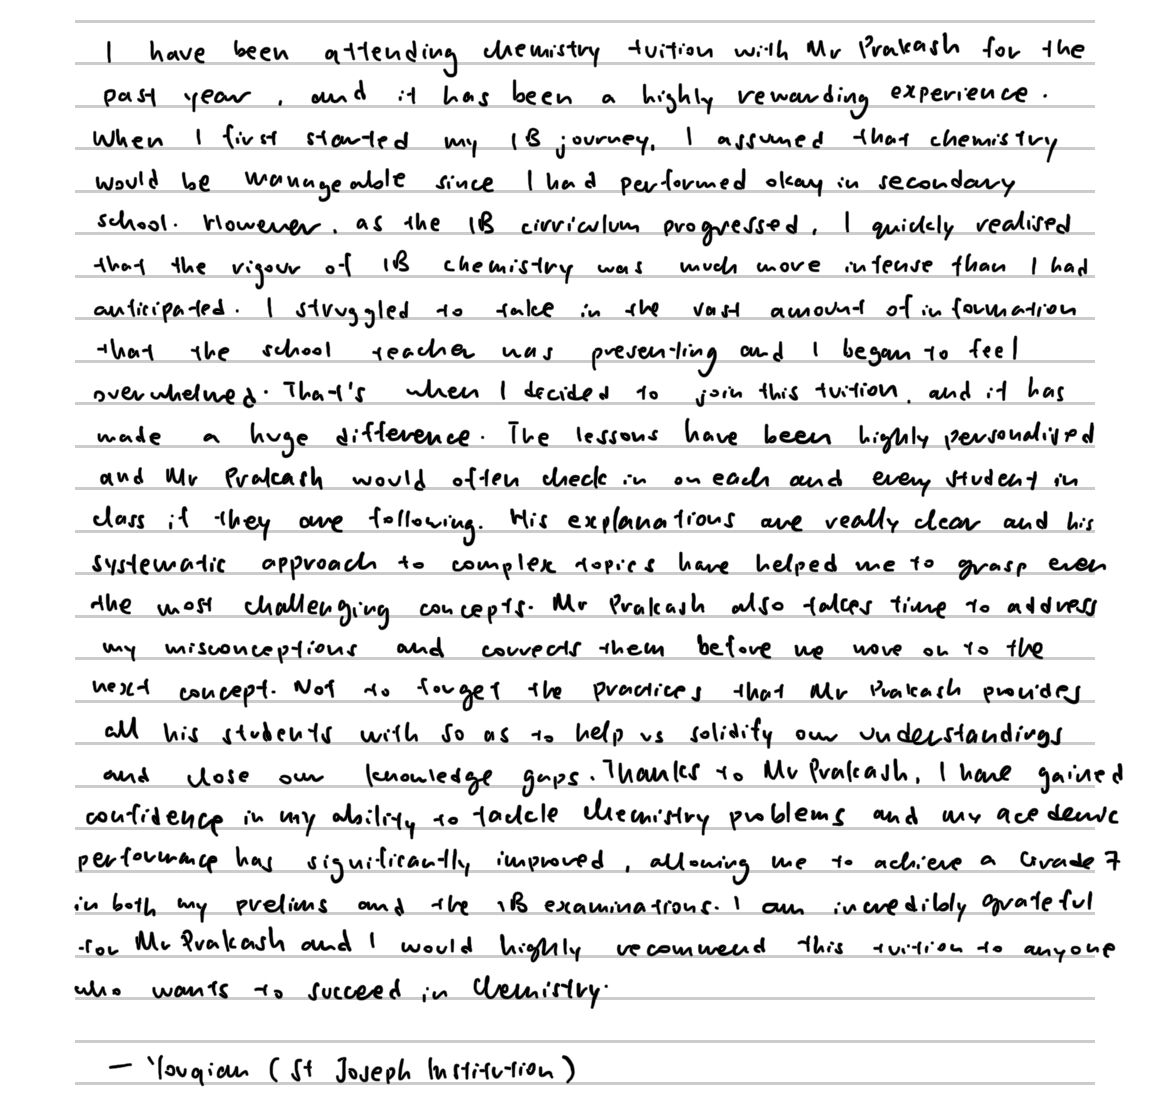 I have been attending chemistry tuition with Mr Prakash for the
past year, and it has been a highly rewarding experience.
When I first started my IB journey, I assumed that chemistry
would be manageable since I had performed okay in secondary
school. However, as the IB cirriculum progressed, I quickly realised
that the rigour of IB chemistry was much more intense than I had
anticipated. I struggled to take in the vast amount of information
that the school teacher was presenting and I began to feel
overwhelmed. That's when I decided to join this tuition, and it has
made a huge difference. The lessons have been highly personalised
and Mr Prakash would often check in on each and every student in
class if they are following. His explanations are really clear and his
systematic approach to complex topics have helped me to grasp even
the most challenging concepts. Mr Prakash also takes time to address
my misconceptions and corrects them before we move on to the
next concept. Not to forget the practices that Mr Prakash provides
all his students with so as to help us solidify our understandings
and close our knowledge gaps. Thanks to Mr Prakash, I have gained
confidence in my ability to tackle Chemistry problems and my academic
performance has significantly improved, allowing me to achieve a Grade 7
in both my prelims and the IB examinations. I am incredibly grateful
for Mr Prakash and I would highly recommend this tuition to anyone
who wants to succeed in Chemistry.
— Youqian (St Joseph Institution)